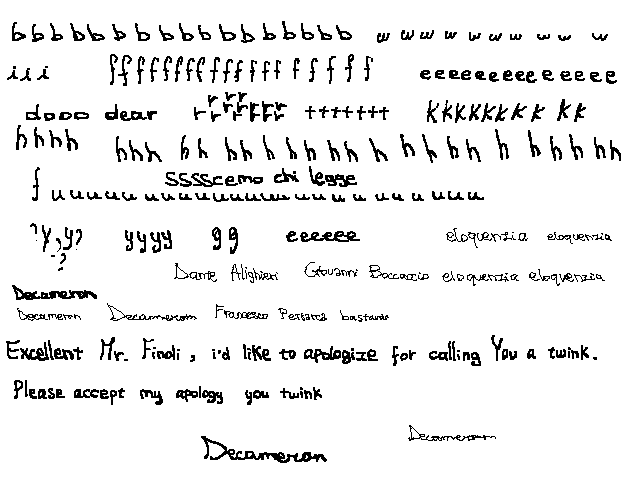 b b b b b b b b b b b b b b b b b w w w w w w w w w w
i i i f f f f f f f f f f f f f f f f f f f e e e e e e e e e e e e e e
dooo dear r r r r r r r r r r t t t t t t t k k k k k k k k k k
h h h h h h h h h h h h h h h h h h h h h h h h h
SSSScemo chi legge
f u u u u u u u u u u u u u u u u u u u u u
? y , y ? y y y y g g e e e e e e eloquenzia eloquenzia
- ?
Dante Alighieri Giovanni Boccaccio eloquenzia eloquenzia
Decameron
Decameron Decameron Francesco Petrarca bastardo
Excellent Mr. Finoli, i'd like to apologize for calling You a twink.
Please accept my apology you twink
Decameron
Decameron